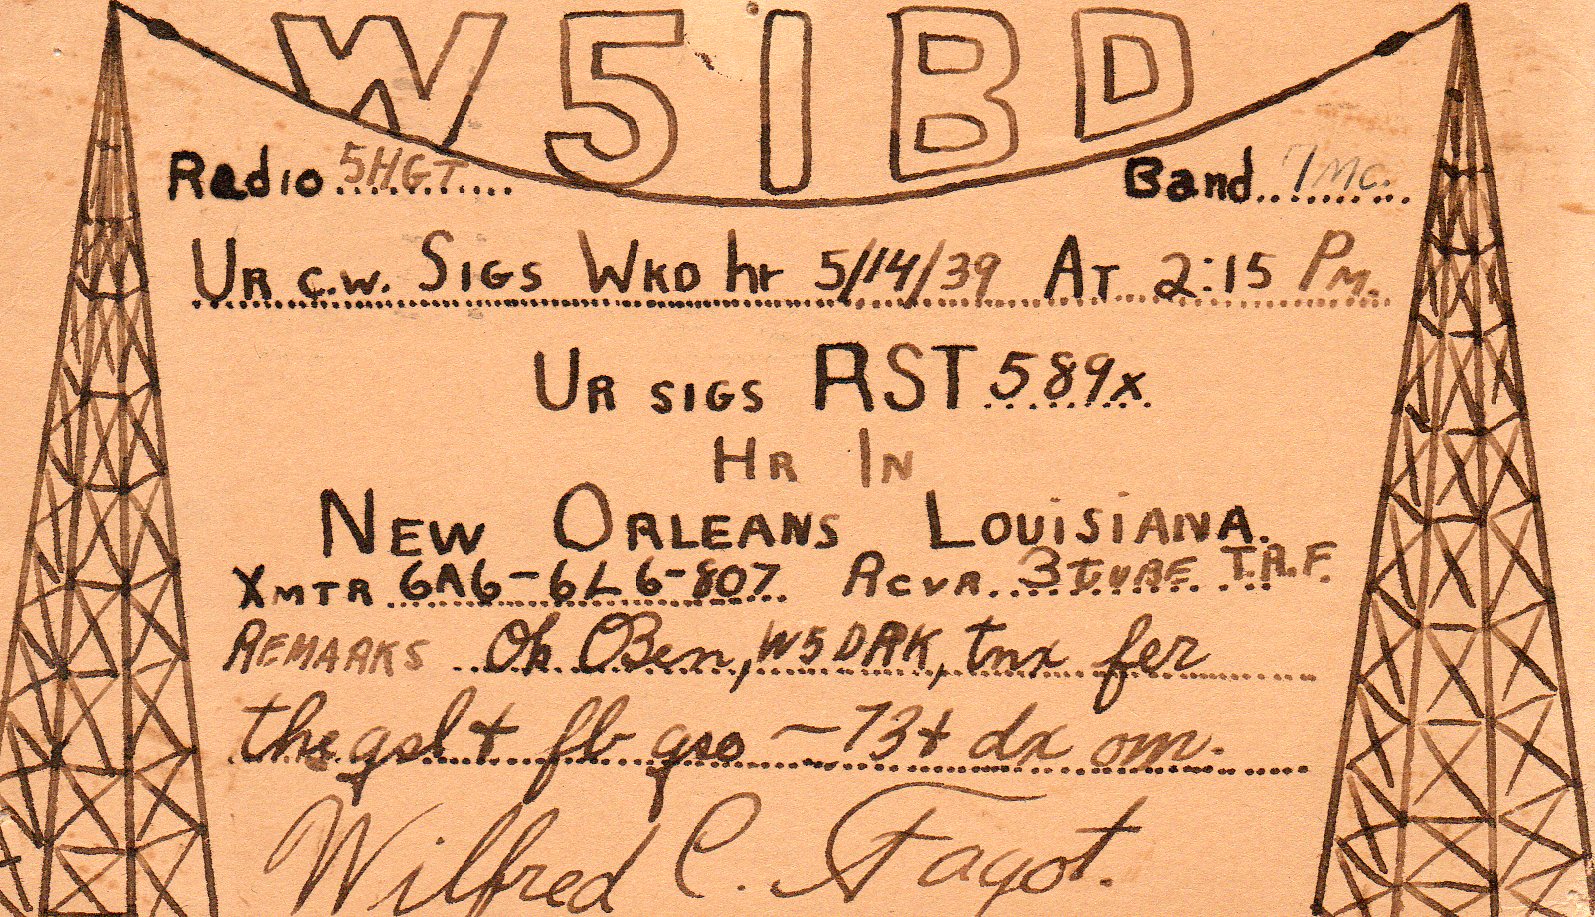 W5IBD
Radio 5HGT Band 7MC.
UR C.W. SIGS WKD hr 5/14/39 AT 2:15 PM.
UR SIGS RST 589x
HR IN
NEW ORLEANS LOUISIANA.
XMTR 6A6-6L6-807 RCVR. 3 TUBE T.R.F.
REMARKS Ok OBen, W5DRK, tnx fer
the qsl + fb qso ~ 73 + dx om.
Wilfred C. Fagot.